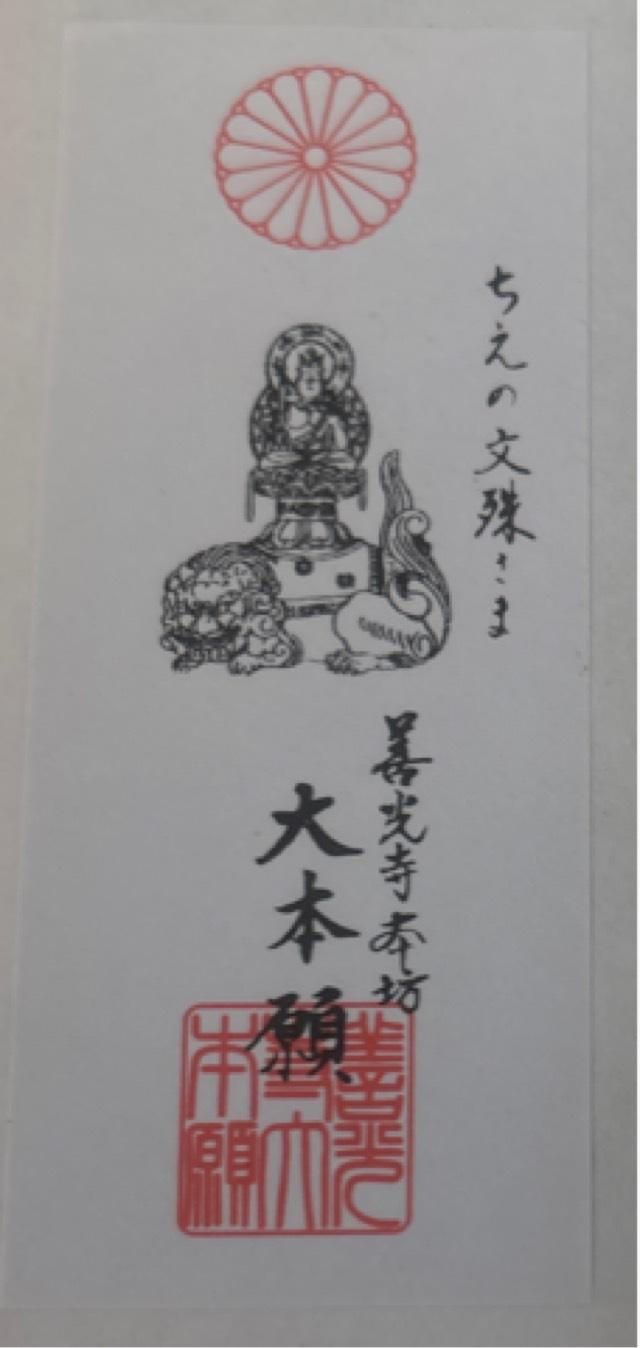 ちえの文殊さま
善光寺本坊
大本願
善光
寺大
本願